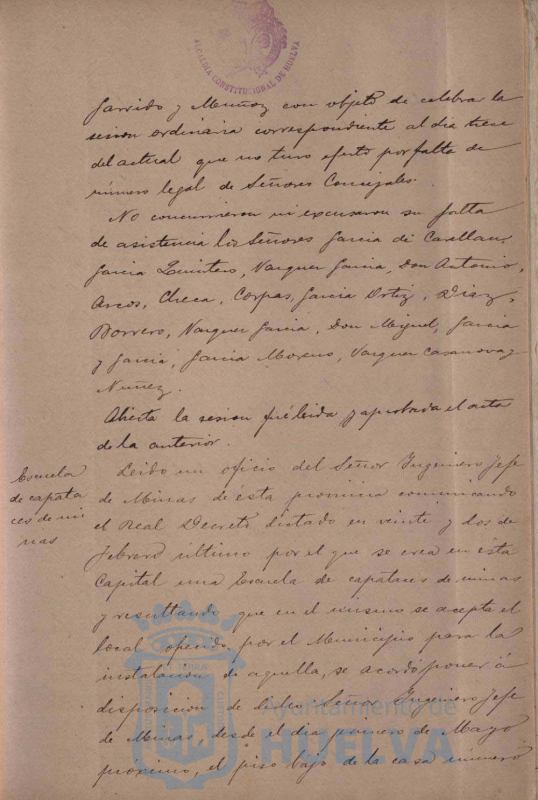 ALCALDIA CONSTITUCIONAL DE HUELVA
Garrido y Muñoz con objeto de celebrar la
sesion ordinaria correspondiente al dia trece
del actual que no tuvo efecto por falta de
número legal de Señores Concejales.
No concurrieron ni excusaron su falta
de asistencia los Señores Garcia de
Garcia Quintero, Vazquez Garcia, Don Antonio,
Arcos, Checa, Corpas, Garcia Ortiz, Diaz,
Borrero, Vazquez Garcia, Don Miguel, Garcia
y Garcia, Garcia Moreno, Vazquez Casanova y
Nuñez.
Abierta la sesion fué leida y aprobada el acta
de la anterior.
Escuela
de capata
ces de mi
nas
Leido un oficio del Señor Ingeniero Jefe
de Minas de ésta provincia comunicando
el Real Decreto dictado en veinte y dos de
Febrero último por el que se crea en ésta
Capital una Escuela de capataces de minas
y resultando que en el mismo se acepta el
local ofrecido por el Municipio para la
instalacion de aquella, se acordó poner á
disposicion de dicho Señor Ingeniero Jefe
de Minas, desde el dia primero de Mayo
próximo, el piso bajo de la casa número
Ayuntamiento de
HUELVA